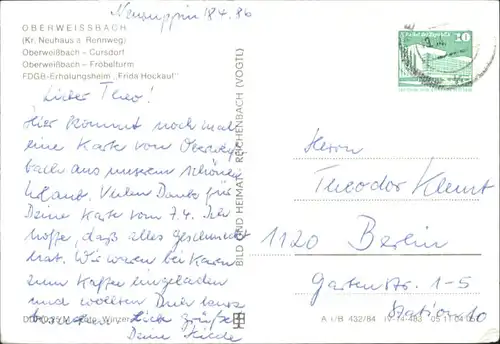 Neuruppin 18.4.86
OBERWEISSBACH
(Kr. Neuhaus a. Rennweg)
Oberweißbach - Cursdorf
Oberweißbach - Fröbelturm
FDGB-Erholungsheim „Frida Hockauf“
Lieber Theo!
Hier kommt noch mal
eine Karte von Oberweiß-
bach aus unserem schönen
Urlaub. Vielen Dank für
Deine Karte vom 7.4. Ich
hoffe, daß alles geschmeckt
hat. Wir waren bei Karin
zum Kaffee eingeladen
und wollten Dich
Liebe Grüße
Deine
BILD UND HEIMAT REICHENBACH (VOGTL)
10
Herrn
Theodor Klemt
1120 Berlin
Gartenstr. 1-5
A 1/B 432/84 IV-14-483